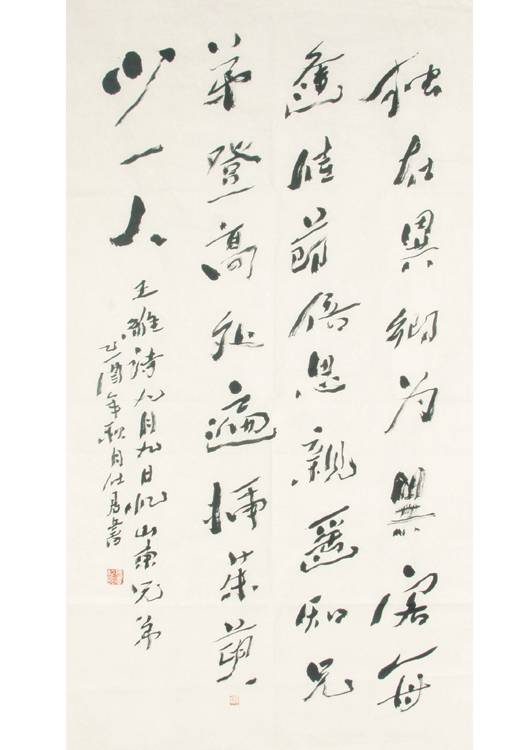 独在異鄉为異客每
逢佳節倍思親遥知兄
弟登高处遍插茱萸
少一人
王維詩九月九日忆山東兄弟
乙酉年秋月仕書